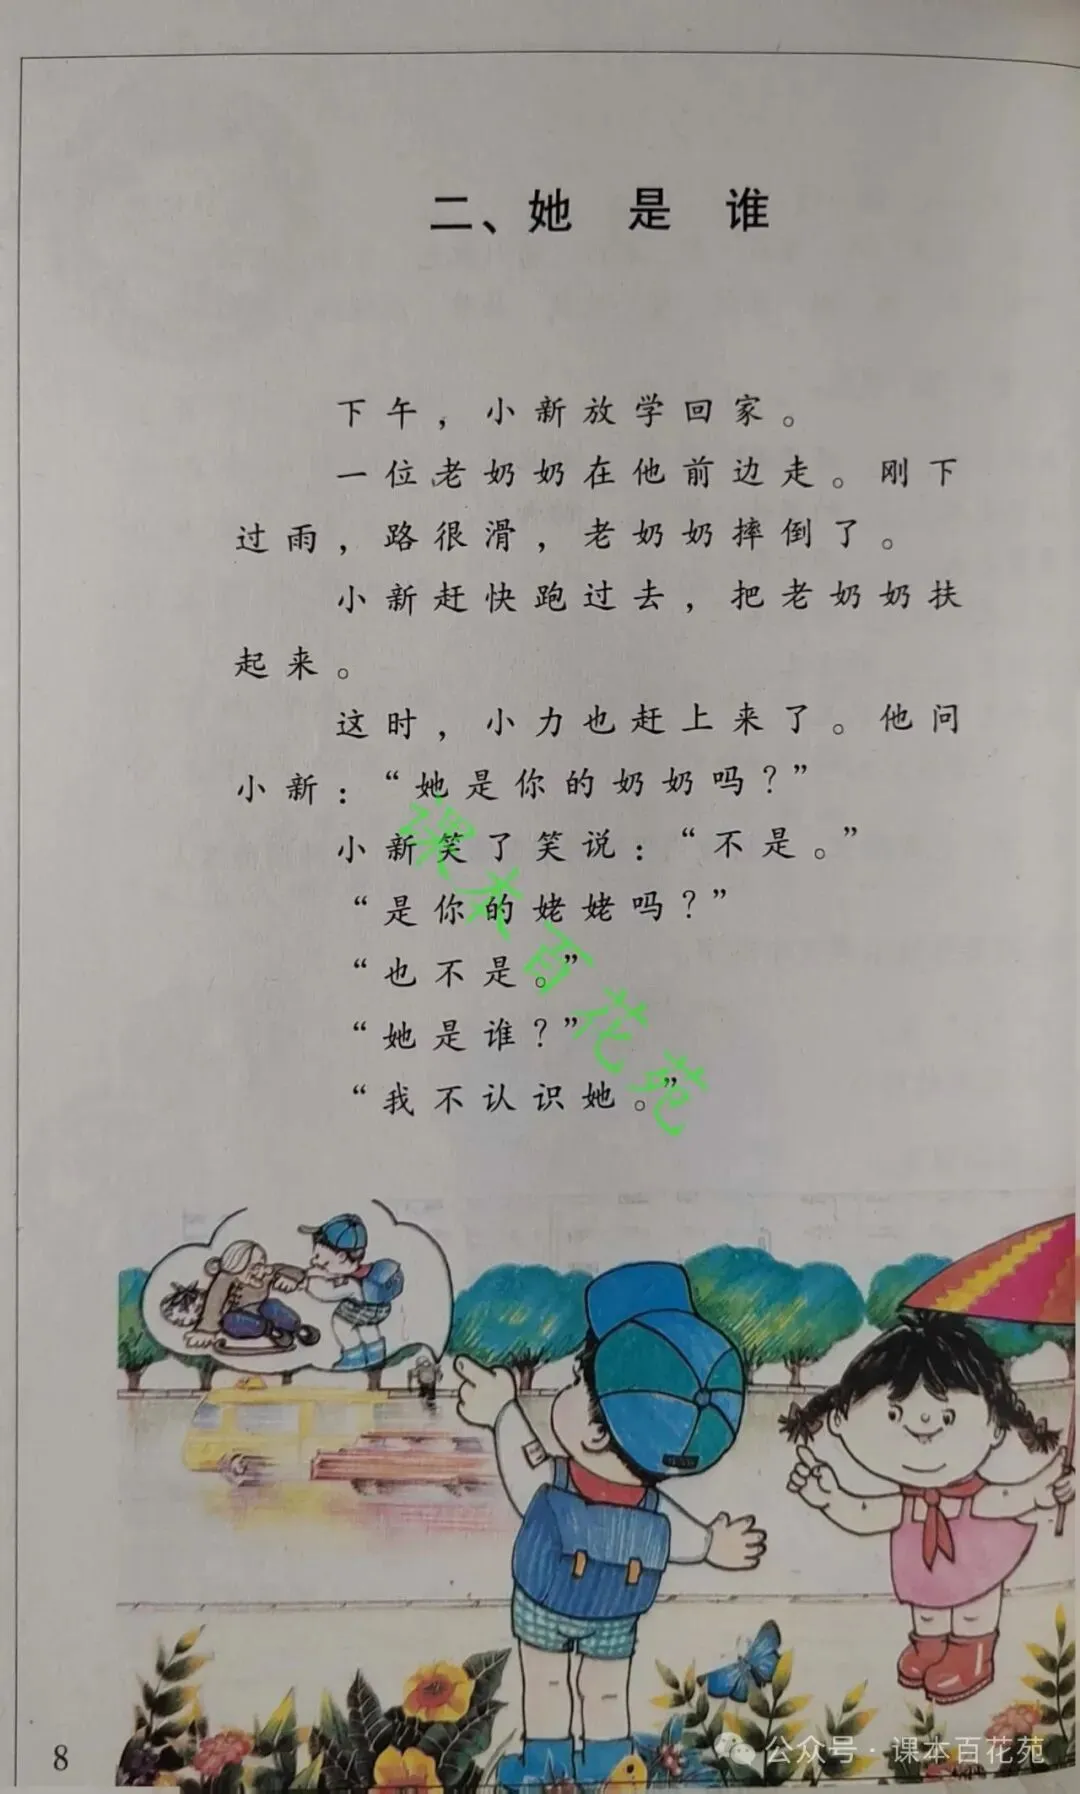 二、她 是 谁
下午，小新放学回家。
一位老奶奶在他前边走。刚下
过雨，路很滑，老奶奶摔倒了。
小新赶快跑过去，把老奶奶扶
起来。
这时，小力也赶上来了。他问
小新：“她是你的奶奶吗？”
小新笑了笑说：“不是。”
“是你的姥姥吗？”
“也不是。”
“她是谁？”
“我不认识她。”
课本百花苑
8
公众号·课本百花苑